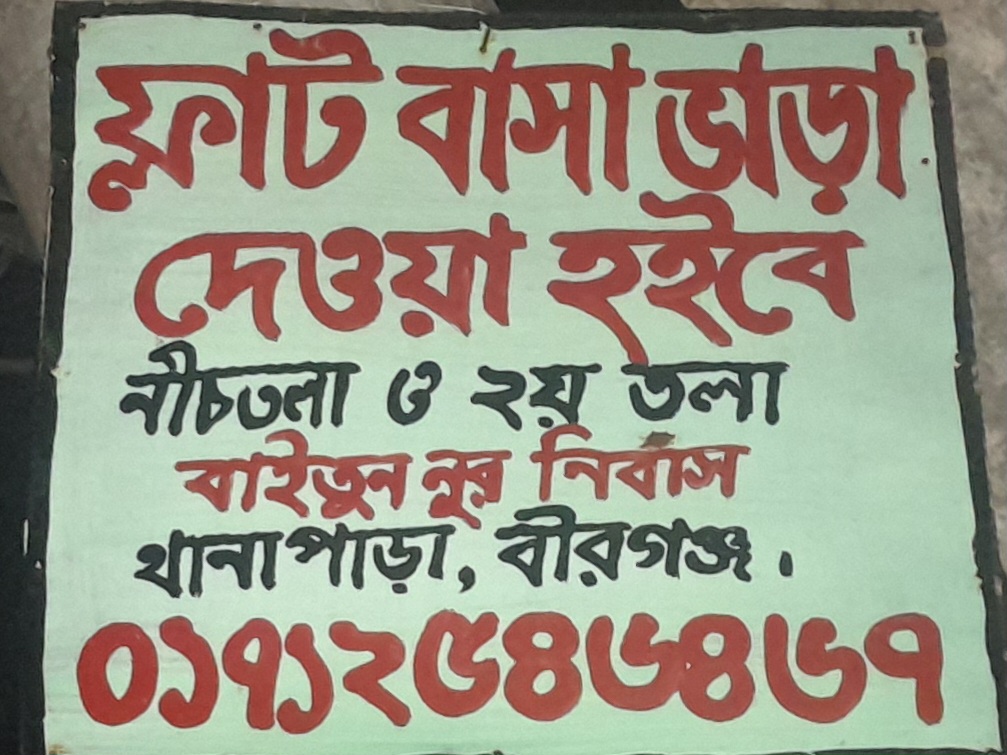 ফ্লাট বাসা ভাড়া
দেওয়া হইবে
নীচতলা ও ২য় তলা
বাইতুন নুর নিবাস
থানাপাড়া, বীরগঞ্জ.
০১৭১২৫৪৬৪৬৭